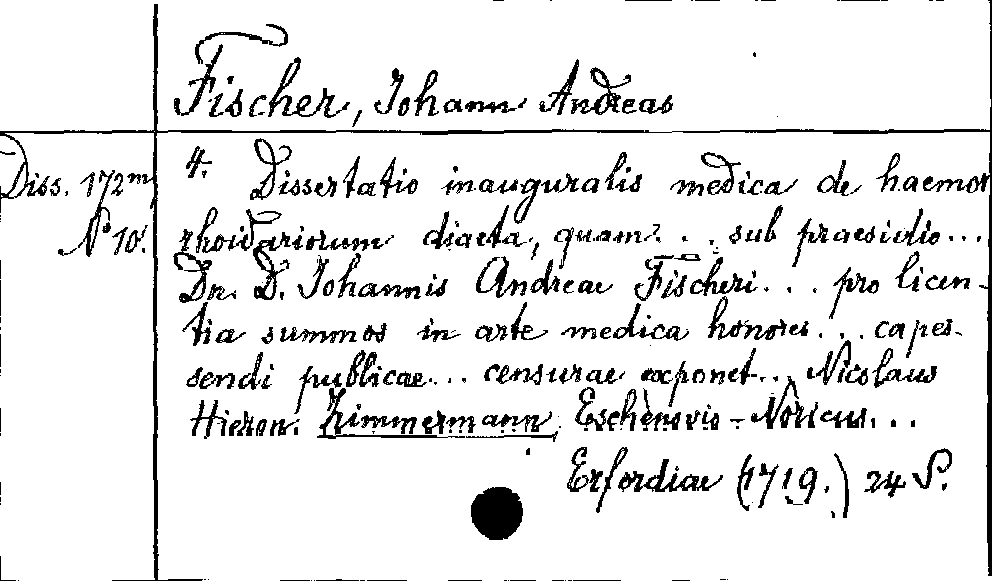 Fischer, Johann Andreas
Diss. 172m
No 10.
4. Dissertatio inauguralis medica de haemor
rhoidariorum diaeta, quam... sub praesidio...
Dn. D. Johannis Andreae Fischeri... pro licen-
tia summos in arte medica honores... capes-
sendi publicae... censurae exponet... Nicolaus
Hieron. Zimmermann, Eschenovio-Noricus...
Erfordiae (1719.) 24 S.